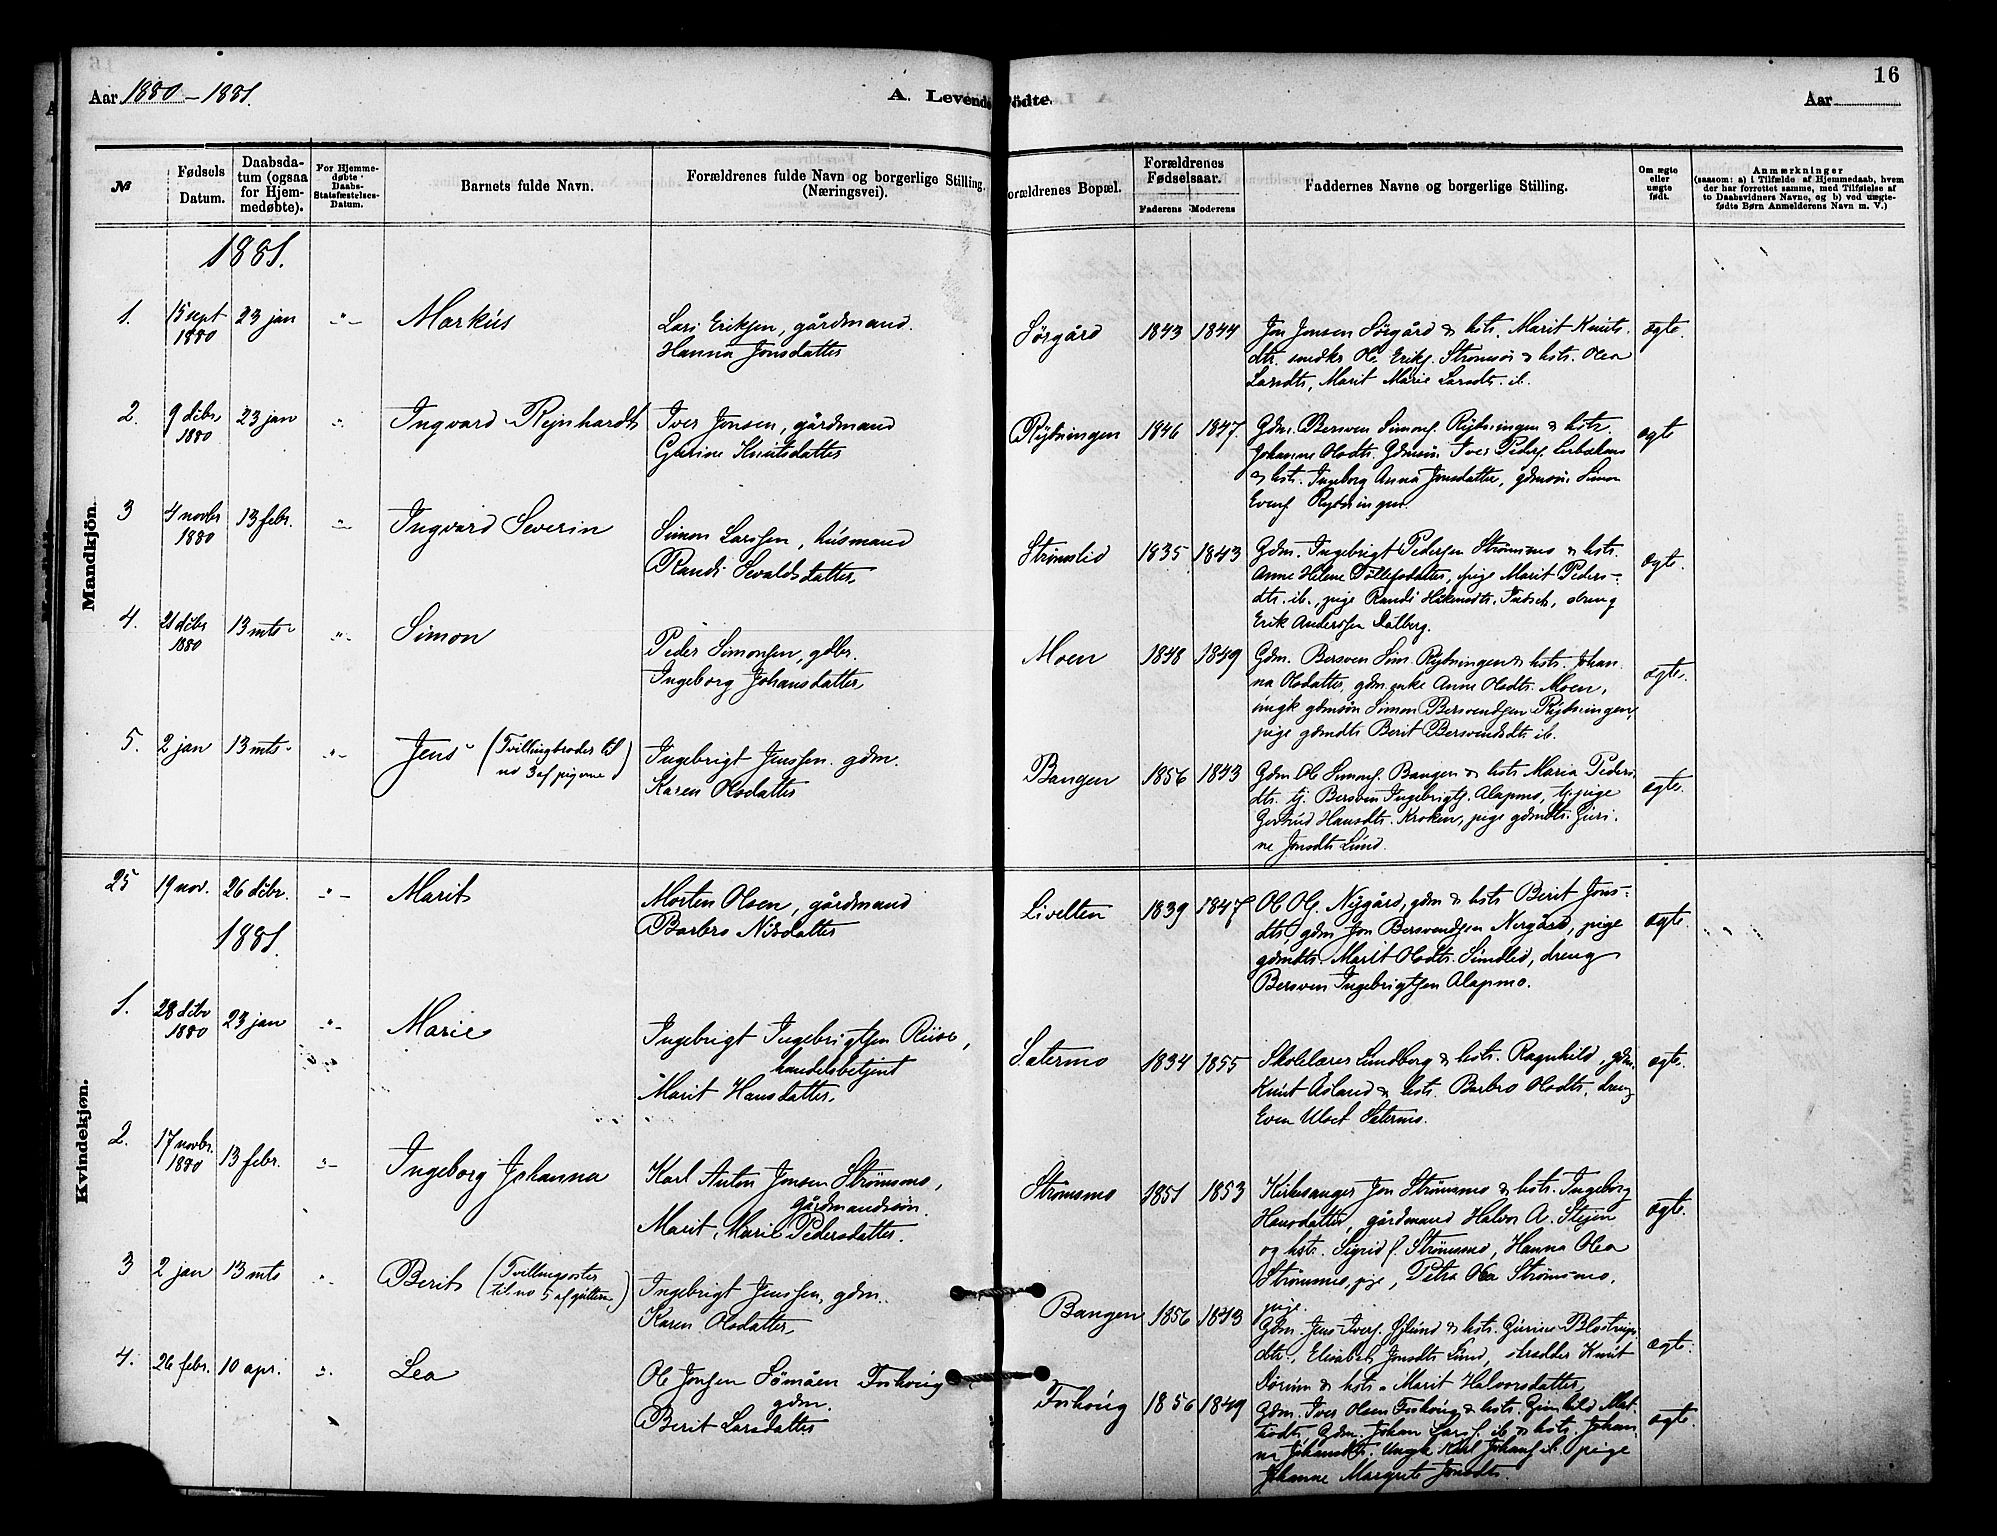 16
Aar 1880-1881.
A. Levende Fødte.
Aar
№
Fødsels Datum.
Daabsdatum (ogsaa for Hjemmedøbte).
For Hjemmedøbte Daabs-Stadfæstelses-Datum.
Barnets fulde Navn.
Forældrenes fulde Navn og borgerlige Stilling. (Næringsvei).
Forældrenes Bopæl.
Forældrenes Fødselsaar.
Faderens Moderens
Faddernes Navne og borgerlige Stilling.
Om ægte eller uægte født.
Anmærkninger
(saasom: a) i Tilfælde af Hjemmedaab, hvem
der har forrettet samme, med Tilføielse af
to Daabsvidners Navne, og b) ved uægte-
fødte Børn Anmelderens Navn m. V.)
Mandkjön.
1881.
1. 15 sept 1880 23 jan -"- Markús
Lars Eriksen, gårdmand.
Hanna Jonsdatter
Sörgård 1843 1844
Jon Jonsen Sörgård & hstr. Marit Knuts.
dtr. Ole Eriks. Strömsör & hstr. Olea
Larsdtr, Marit Marie Larsdtr. ib.
ægte.
2. 9 debr 1880 23 jan " Ingvard Rejnhardt
Iver Jonsen, gårdmand
Gurine Knutsdatter
Rýdningen 1846 1847.
Gdm. Bersven Simons. Rýdningen & hstr.
Johanne Olsdtr. Gdmsön Iver Peders.
& hstr. Ingeborg Anna Jonsdatter, gdmsön Simon
Evens. Rydningen.
ægte
3 4 novbr 1880 13 febr. " Ingvard Severin
Simon Larssen, húsmand
Randi Sevaldsdatter
Strömslid 1835 1843
Gdm. Ingebrigt Pedersen Strömsmo & hstr.
Anne Helene Tollefsdatter, pige Marit Peders-
dtr. ib., pige Randi Håkensdtr. Indset, dreng
Erik Anderssen Dalberg.
ægte.
4. 21 debr 1880 13 mts " Simon
Peder Simonsen, gdbr.
Ingeborg Johansdatter
Moen 1848 1849
Gdm. Bersven Sim. Rydningen & hstr. Johan-
na Olsdatter, gdm.enke Anne Olsdtr. Moen,
ungk gdmsön Simon Bersvendsen Rýdningen,
pige gdmdtr Berit Bersvendsdtr. ib.
ægte.
5. 2 jan 13 mts " Jens (Tvillingbroder til
no 3 af pigerne)
Ingebrigt Jenssen. gdm.
Karen Olsdatter
Bangen 1856 1843
Gdm. Ole Simons. Bangen & hstr Maria Peders.
dtr. tj. Bersven Ingebrigts. Alapmo, tj. pige
Gertrud Hansdtr. Kroken, pige gdmdtr. Guri-
ne Jonsdtr Lund.
ægte.
Kvindekjøn.
25 19 nov. 26 debr. " Marit
Morten Olsen, gårdmand
Barbro Nilsdatter
Livelten 1839 1847
Ole Ols. Nýgård, gdm & hstr Berit Jons-
dtr, gdm Jon Bersvendsen Nergård, pige
gdmdtr. Marit Olsdtr. Sundlid, dreng
Bersven Ingebrigtsen Alapmo.
ægte.
1881.
1. 28 debr 1880 23 jan " Marie
Ingebrigt Ingebrigtsen Riise,
handelsbetjent
Marit Hansdatter.
Sætermo 1834 1855
Skolelærer Lundberg & hstr. Ragnhild, gdm.
Knut Åsland & hstr. Barbro Olsdtr., dreng
Even Ulset Sætermo.
ægte.
2. 17 novbr. 1880 13 febr. " Ingeborg Johanna
Karl Anton Jonsen Strömsmo,
gårdmandssön.
Marit Marie Pedersdatter.
Strömsmo 1851 1853
Kirkesanger Jon Strömsmo & hstr. Ingeborg
Hansdatter, gårdmand Halvor A. Stejen
og hstr. Sigrid f. Strömsmo, Hanna Olea
Strömsmo, pige, Petra Olea Strömsmo,
pige.
ægte.
3 2 jan 13 mts " Berit (Tvillingsöster
til no 5 af gutterne)
Ingebrigt Jenssen, gdm.
Karen Olsdatter
Bangen 1856 1843
Gdm. Jens Ivers. & hstr. Gurine
dtr., Elisabet Jonsdtr Lund, skrædder Knut
Sörum & hstr. Marit Halvorsdatter
ægte.
4. 26 febr. 10 apr. " Lea
Ole Jonsen Sömåen Foshoúg
gdm.
Berit Larsdatter
Foshoúg 1856 1849
Gdm. Iver Olsen Foshoug & hstr. Gunhild
Gdm. Johan Lars. ib & hstr. Johan-
na Johansdtr. Ungk. Karl Johans. ib. pige
Johanne Margrete Jonsdtr.
ægte.